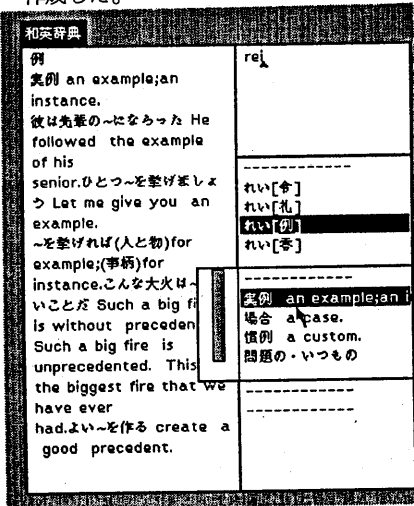 作成した。
和英辞典
例
実例 an example;an
instance.
彼は先輩の~にならった He
followed the example
of his
senior.ひとつ~を挙げましょ
う Let me give you an
example.
~を挙げれば(人と物)for
example;(事柄)for
instance.こんな大火は~
いことだ Such a big fi
is without preceden
Such a big fire is
unprecedented. This
the biggest fire that we
have ever
had.よい~を作る create a
good precedent.
rei
れい[令]
れい[礼]
れい[例]
れい[香]
実例 an example;an i
場合 a case.
慣例 a custom.
問題の・いつもの